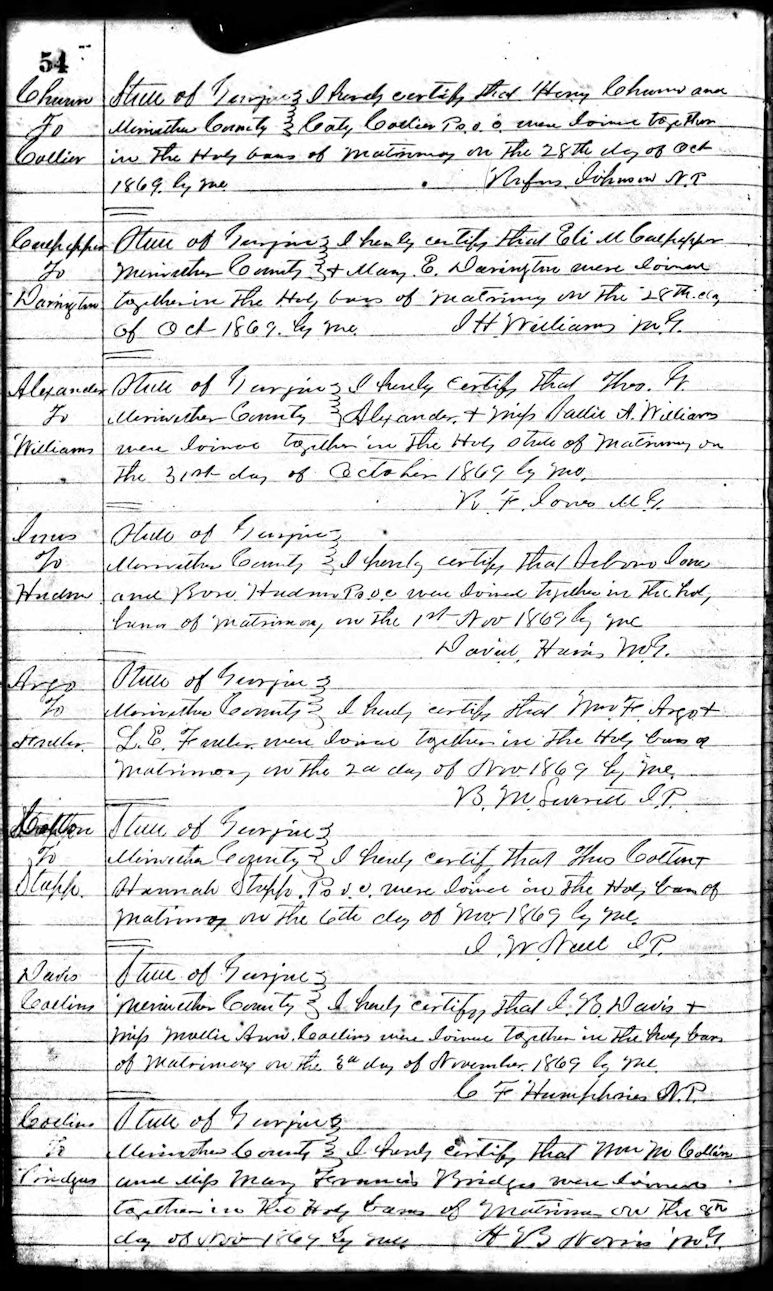 54
Chunn To Collier
State of Georgia } I hereby certify that Henry Chunn and
Meriwether County } Caty Collier P.o.c. were Joined together
in the Holy bans of Matrimony on the 28th day of Oct
1869 by me Rufus Johnson N.P
Culpepper To Darington
State of Georgia } I hereby certify that Eli M Culpepper
Meriwether County } & Mary E. Darington were Joined
together in the Holy bans of Matrimony on the 28th day
of Oct 1869. by me. J H Williams M.G.
Alexander To Williams
State of Georgia } I hereby certify that Thos. W.
Meriwether County } Alexander & Miss Sallie A. Williams
were Joined together in the Holy State of Matrimony on
the 31st day of October 1869 by me.
R. F. Jones M.G.
To Hudson
State of Georgia }
Meriwether County } I hereby certify that
and Hudson P.o.c were Joined together in the holy
bans of Matrimony on the 1st Nov 1869 by me
David Harris M.G.
Argo To
State of Georgia }
Meriwether County } I hereby certify that Wm F. Argo &
L.E. were Joined together in the Holy bans of
Matrimony on the 2d day of Nov 1869 by me.
B. M. J.P.
To Stapp.
State of Georgia }
Meriwether County } I hereby certify that Thos &
Hannah Stapp. P.o.c. were Joined in the Holy bans of
Matrimony on the 6th day of Nov 1869 by me.
J. W. J.P.
Davis Collins
State of Georgia }
Meriwether County } I hereby certify that J. B. Davis &
Miss Mollie Ann Collins were Joined together in the holy bans
of Matrimony on the 3d day of November 1869 by me.
C F Humphries N.P.
Collins To Bridges
State of Georgia }
Meriwether County } I hereby certify that Wm M Collins
and Miss Mary Francis Bridges were Joined
together in the Holy bans of Matrimony on the 8th
day of Nov 1869 by me H B Norris M.G.